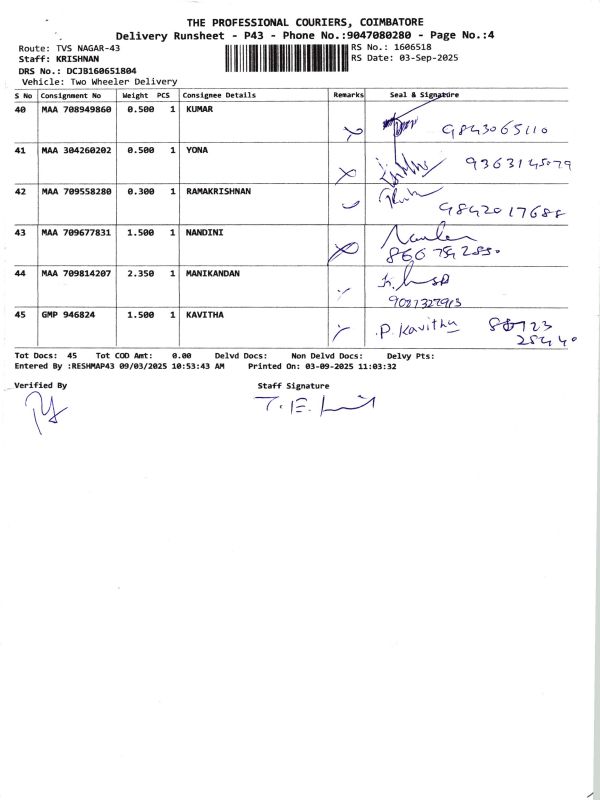 THE PROFESSIONAL COURIERS, COIMBATORE
Delivery Runsheet - P43 - Phone No.:9047080280 - Page No.:4
Route: TVS NAGAR-43 RS No.: 1606518
Staff: KRISHNAN RS Date: 03-Sep-2025
DRS No.: DCJB160651804
Vehicle: Two Wheeler Delivery
S No Consignment No Weight PCS Consignee Details Remarks Seal & Signature
40 MAA 708949860 0.500 1 KUMAR 9843065110
41 MAA 304260202 0.500 1 YONA 9363145079
42 MAA 709558280 0.300 1 RAMAKRISHNAN 9842017688
43 MAA 709677831 1.500 1 NANDINI
44 MAA 709814207 2.350 1 MANIKANDAN
45 GMP 946824 1.500 1 KAVITHA P. Kavitha
Tot Docs: 45 Tot COD Amt: 0.00 Delvd Docs: Non Delvd Docs: Delvy Pts:
Entered By :RESHMAP43 09/03/2025 10:53:43 AM Printed On: 03-09-2025 11:03:32
Verified By Staff Signature